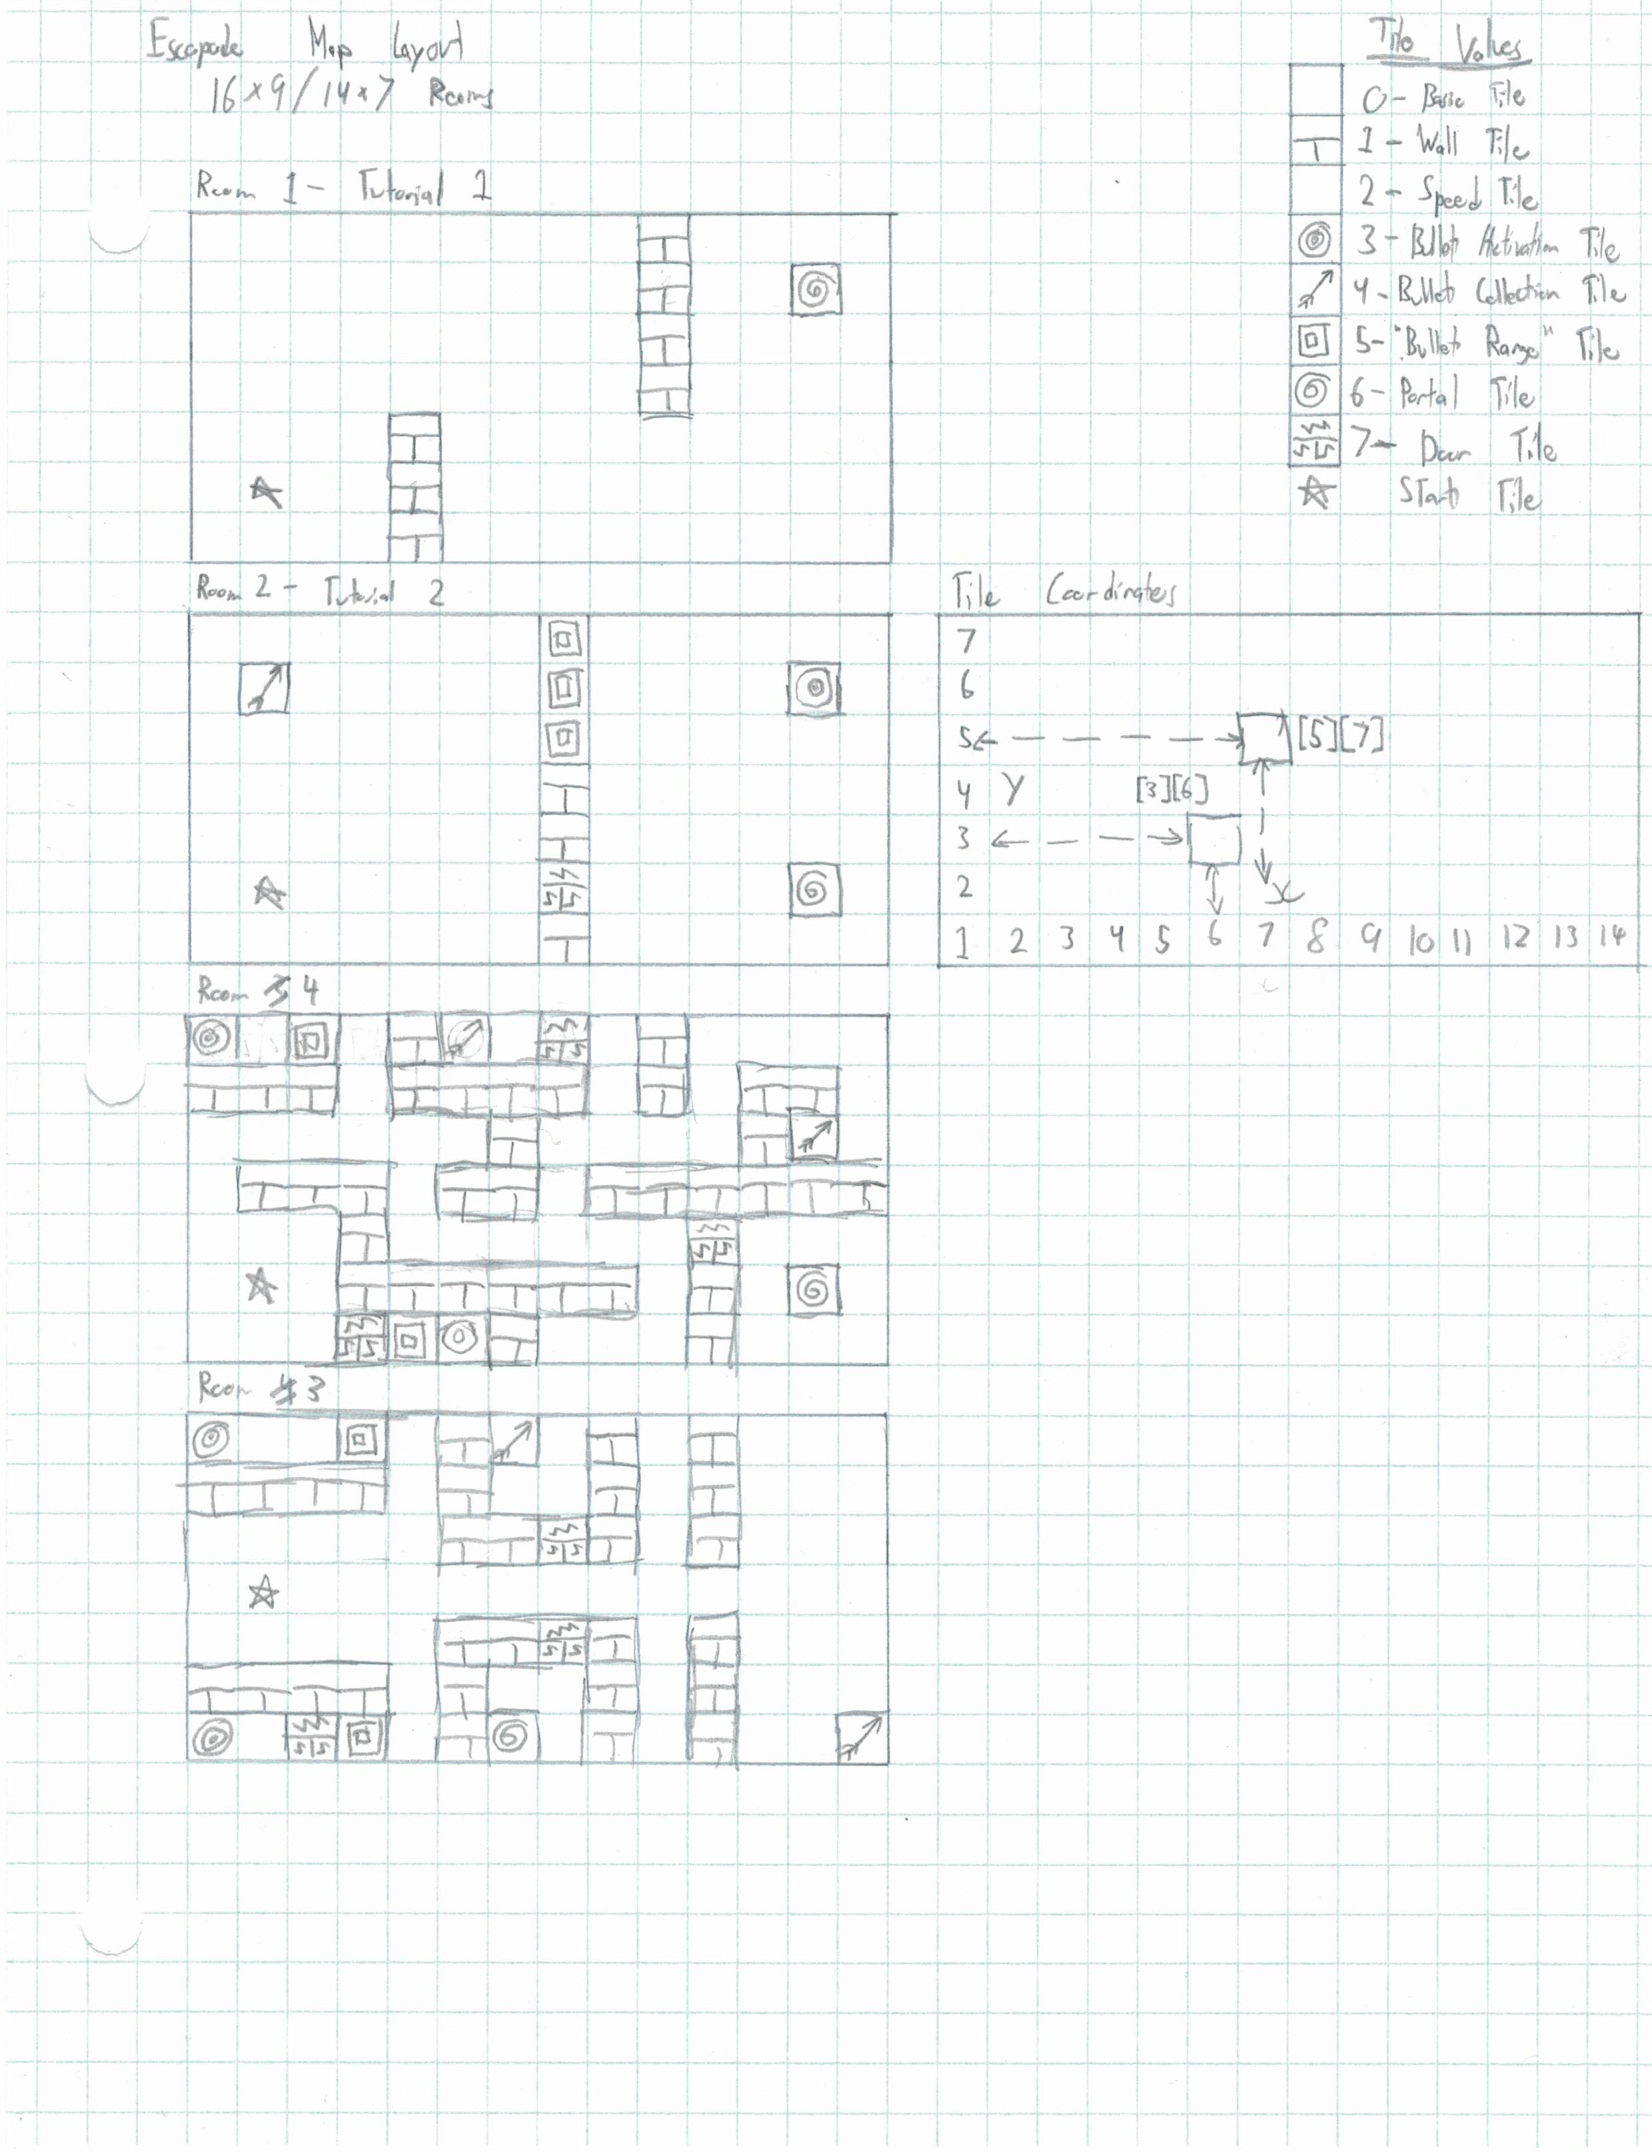 Escapade Map Layout
16×9/14×7 Rooms
Tile Values
0- Basic Tile
1- Wall Tile
2- Speed Tile
3- Bullet Activation Tile
4- Bullet Collection Tile
5- "Bullet Range" Tile
6- Portal Tile
7- Door Tile
Start Tile
Room 1- Tutorial 1
Room 2- Tutorial 2
Tile Coordinates
7
6
5 [5][7]
4 Y [3][6]
3
2 x
1 2 3 4 5 6 7 8 9 10 11 12 13 14
Room 4
Room 3